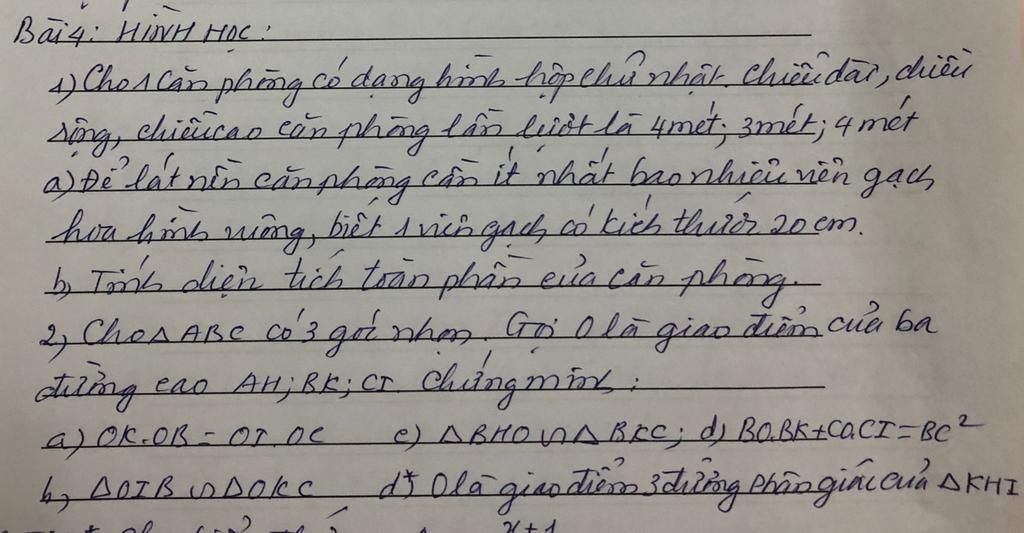 Bài 4: HÌNH HỌC:
1) Cho 1 căn phòng có dạng hình hộp chữ nhật. Chiều dài, chiều
rộng, chiều cao căn phòng lần lượt là 4 mét; 3 mét; 4 mét
a) Để lát nền căn phòng cần ít nhất bao nhiêu viên gạch
hoa hình vuông, biết 1 viên gạch có kích thước 20 cm.
b, Tính diện tích toàn phần của căn phòng.
2, Cho Δ ABC có 3 góc nhọn. Gọi O là giao điểm của ba
đường cao AH; BK; CI. Chứng minh:
a) OK.OB = OI.OC c) Δ BHO ∽ Δ BKC; d) BO.BK+CO.CI=BC²
b, Δ OIB ∽ Δ OKC d*) O là giao điểm 3 đường phân giác của Δ KHI
x+1